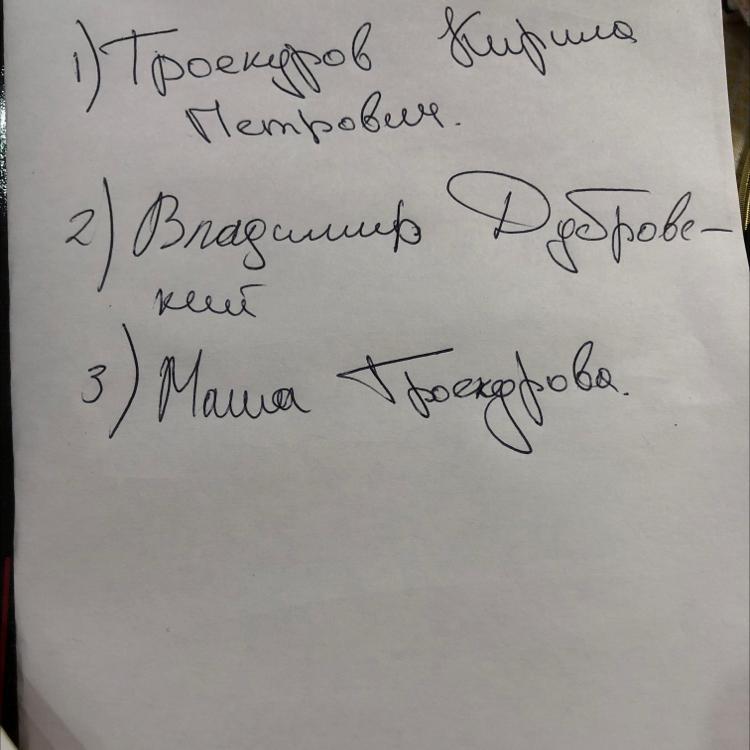 1) Троекуров Кирила
Петрович.
2) Владимир Дубровс-
кий
3) Маша Троекурова.